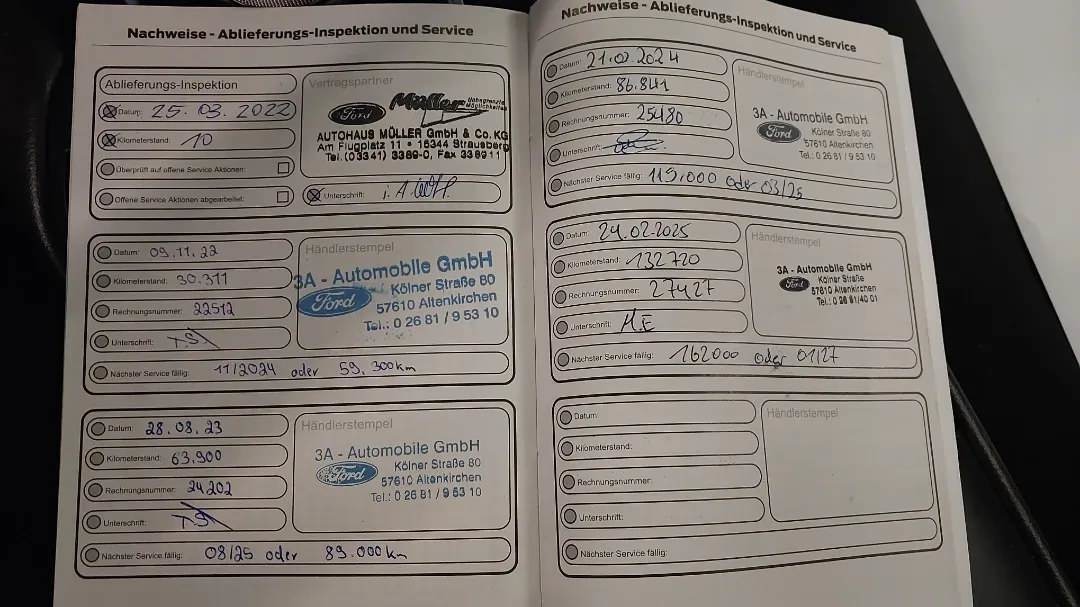 Nachweise - Ablieferungs-Inspektion und Service
Ablieferungs-Inspektion
Datum: 25.03.2022
Kilometerstand: 10
Überprüft auf offene Service Aktionen:
Offene Service Aktionen abgearbeitet:
Vertragspartner
Ford Müller
AUTOHAUS MÜLLER GmbH & Co. KG
Am Flugplatz 11 • 15344 Strausberg
Tel. (03341) 3389-0, Fax 338911
Unterschrift: i.A.
Datum: 09.11.22
Kilometerstand: 30.311
Rechnungsnummer: 22512
Unterschrift:
Nächster Service fällig: 11/2024 oder 59.300km
Händlerstempel
3A - Automobile GmbH
Ford Kölner Straße 80
57610 Altenkirchen
Tel.: 0 26 81 / 9 53 10
Datum: 28.08.23
Kilometerstand: 63.900
Rechnungsnummer: 24202
Unterschrift:
Nächster Service fällig: 08/25 oder 89.000km
Händlerstempel
3A - Automobile GmbH
Ford Kölner Straße 80
57610 Altenkirchen
Tel.: 0 26 81 / 9 53 10
Nachweise - Ablieferungs-Inspektion und Service
Datum: 21.02.2024
Kilometerstand: 86.841
Rechnungsnummer: 25480
Unterschrift:
Nächster Service fällig: 115.000 oder 03/25
Händlerstempel
3A - Automobile GmbH
Ford Kölner Straße 80
57610 Altenkirchen
Tel.: 0 26 81 / 9 53 10
Datum: 24.02.2025
Kilometerstand: 132720
Rechnungsnummer: 27427
Unterschrift: M.E
Nächster Service fällig: 162000 oder 01/27
Händlerstempel
3A - Automobile GmbH
Ford Kölner Straße 80
57610 Altenkirchen
Tel.: 0 26 81/40 01
Datum:
Kilometerstand:
Rechnungsnummer:
Unterschrift:
Nächster Service fällig:
Händlerstempel